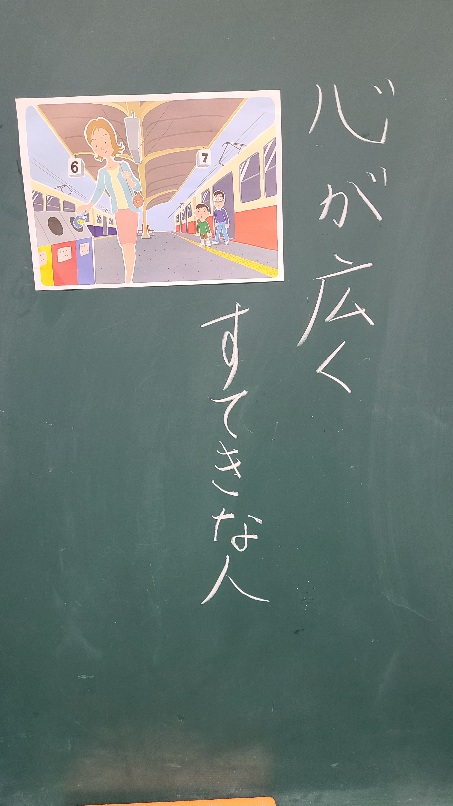 心が広く
すてきな人
6
7